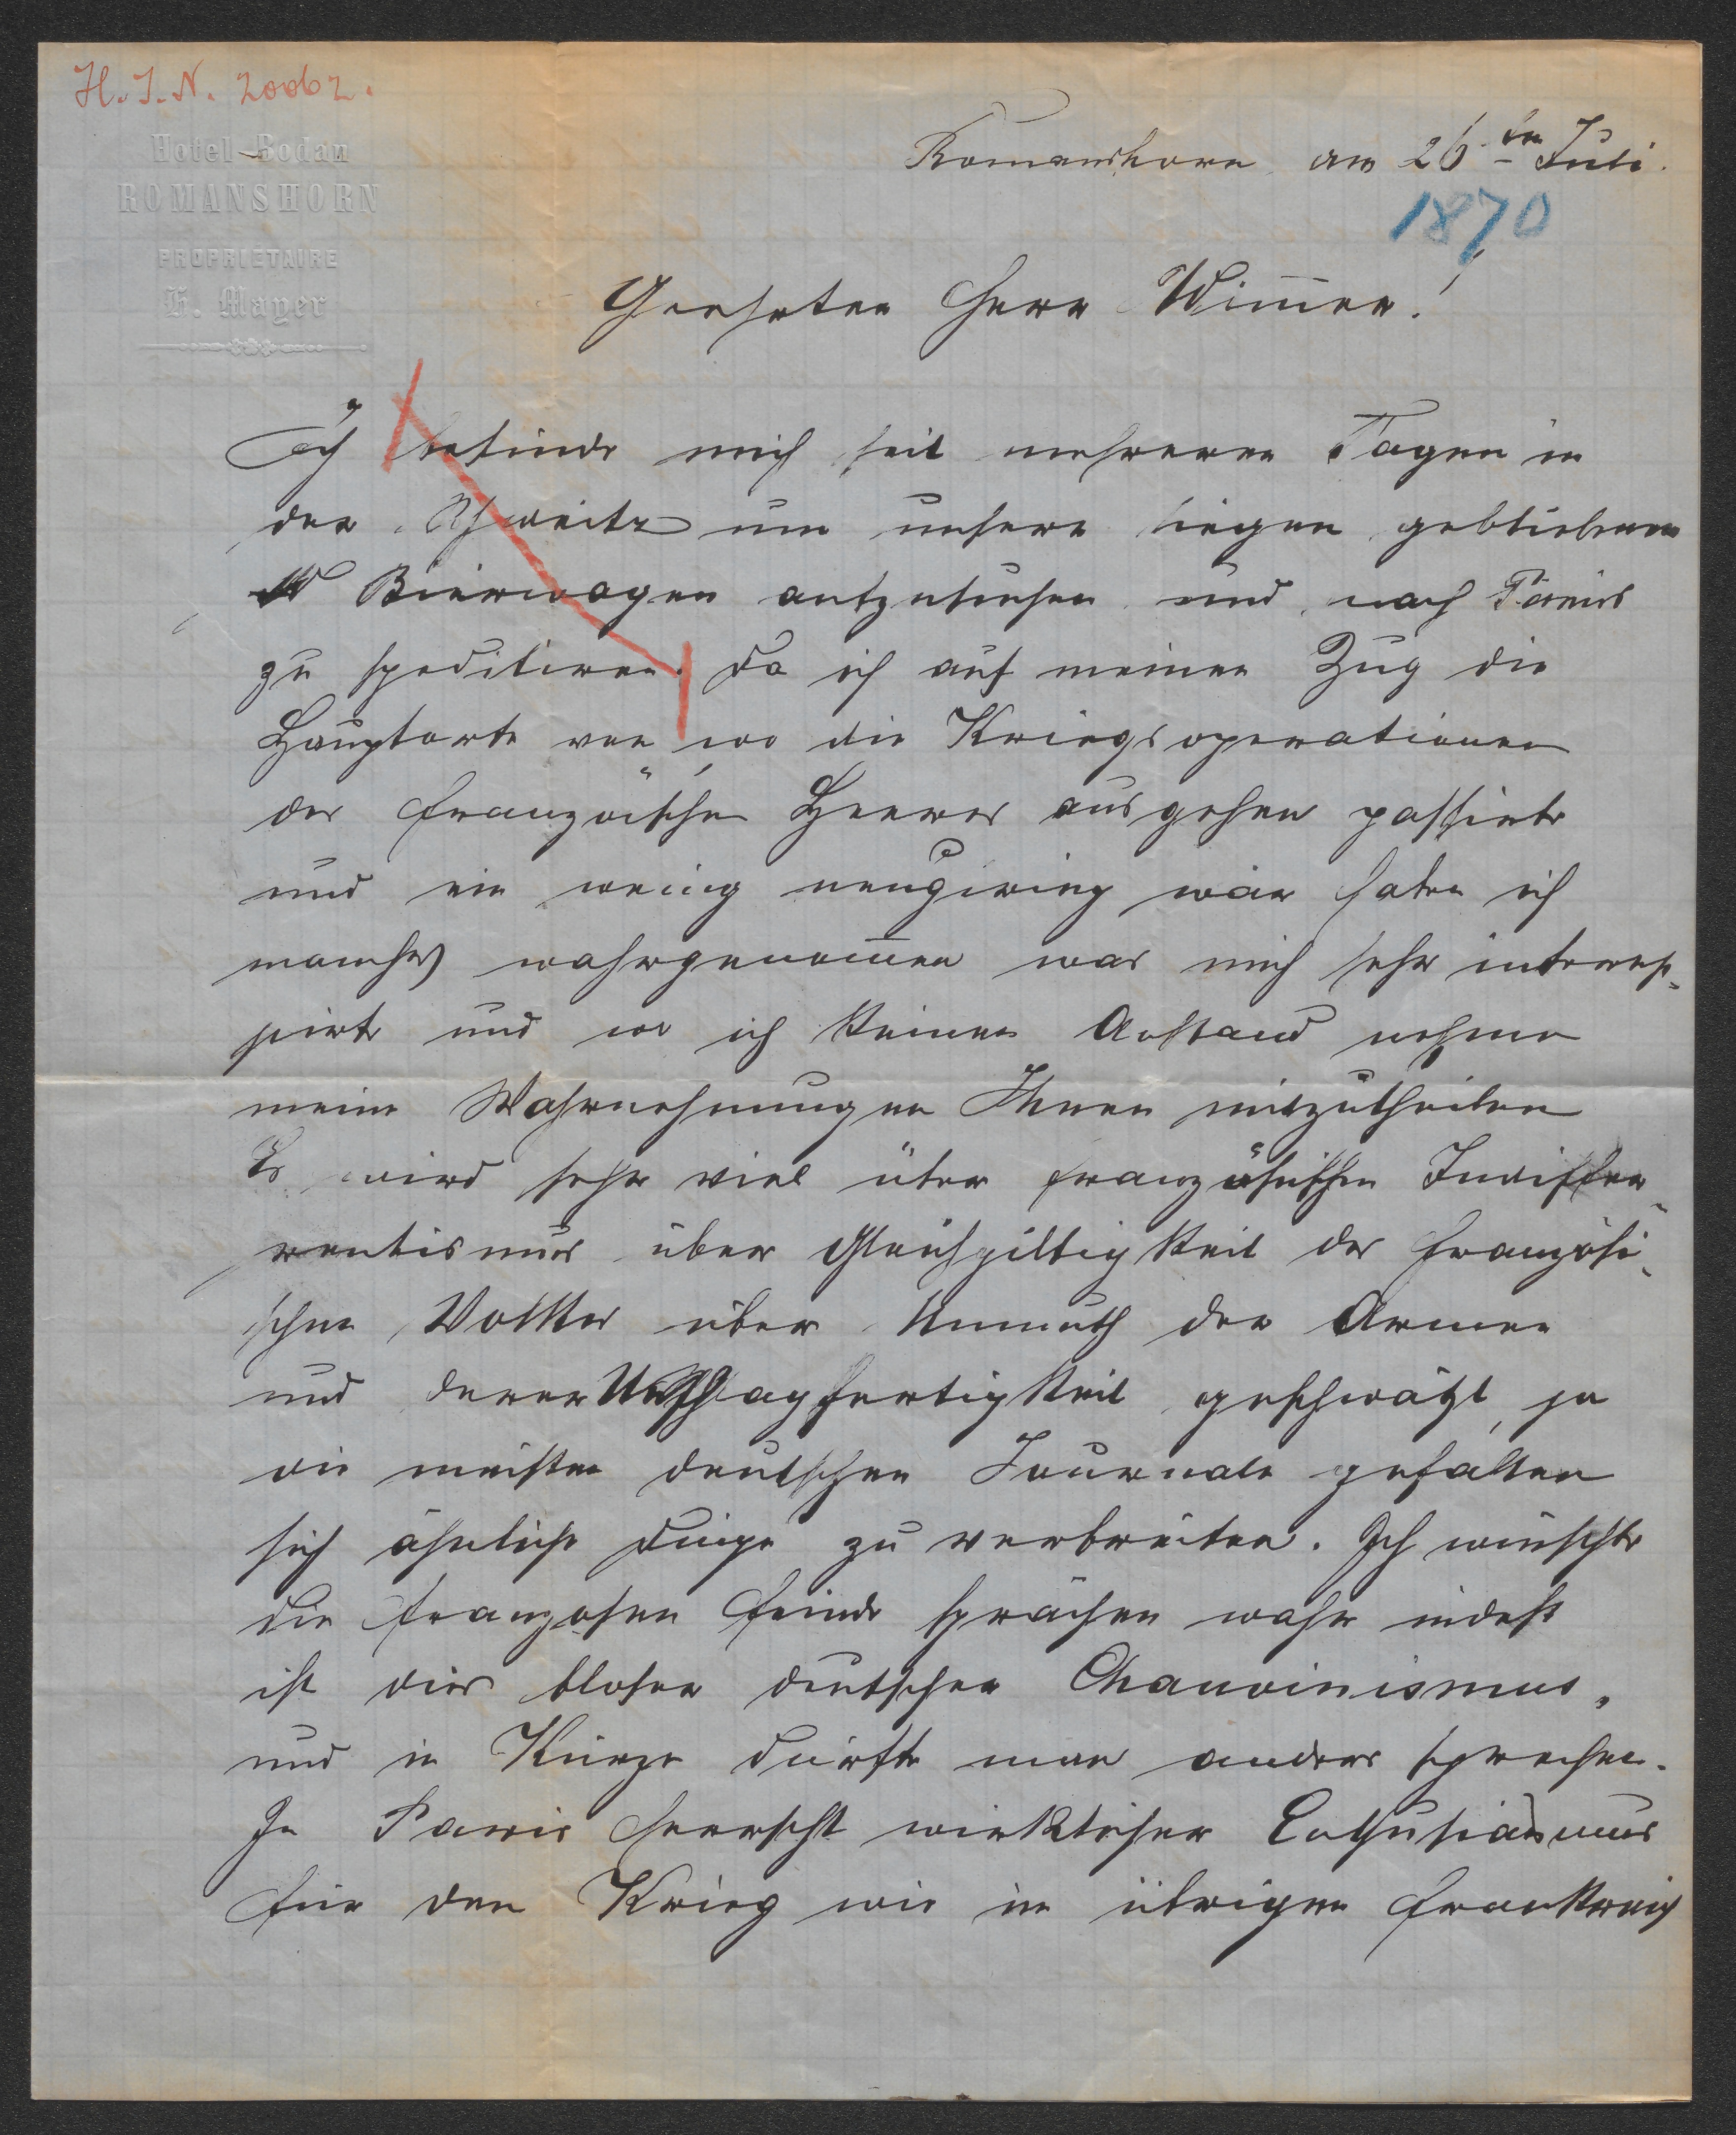 H. I. N. 20062.
Hotel Bodan
ROMANSHORN
PROPRIETAIRE
H. Mayer
Romanshorn am 26ten Juli.
1870
Geehrter Herr Wim̅er!
Ich befinde mich seit mehreren Tagen in
der Schweitz um unsere liegen gebliebenen
Bierwagen aufzusuchen und nach Paris
zu speditiren. Da ich auf meinen Zug die
Hauptorte von wo die Kriegsoperationen
des französchen Heeres ausgehen passirte
und ein wenig neugierieg war habe ich
manches wahrgenom̅en was mich sehr interes-
sirte und wo ich keinen Anstand nehme
meine Wahrnehmungen Ihnen mitzutheilen
Es wird sehr viel über französischen Indiffer-
rentismus über Gleichgiltigkeit des französi-
schen Volkes über Unmuth der Armee
und deren Unschlagfertigkeit geschwätzt, ja
die meisten deutschen Journale gefallen
sich ähnliche Dinge zu verbreiten. Ich wünschte
die Franzosen Feinde sprächen wahr indeß
ist dies bloser deutscher Chauvinismus,
und in Kürze dürfte man anders sprechen.
In Paris herrscht wirklicher Enthusiasmus
für den Krieg wie in übrigen Frankreich